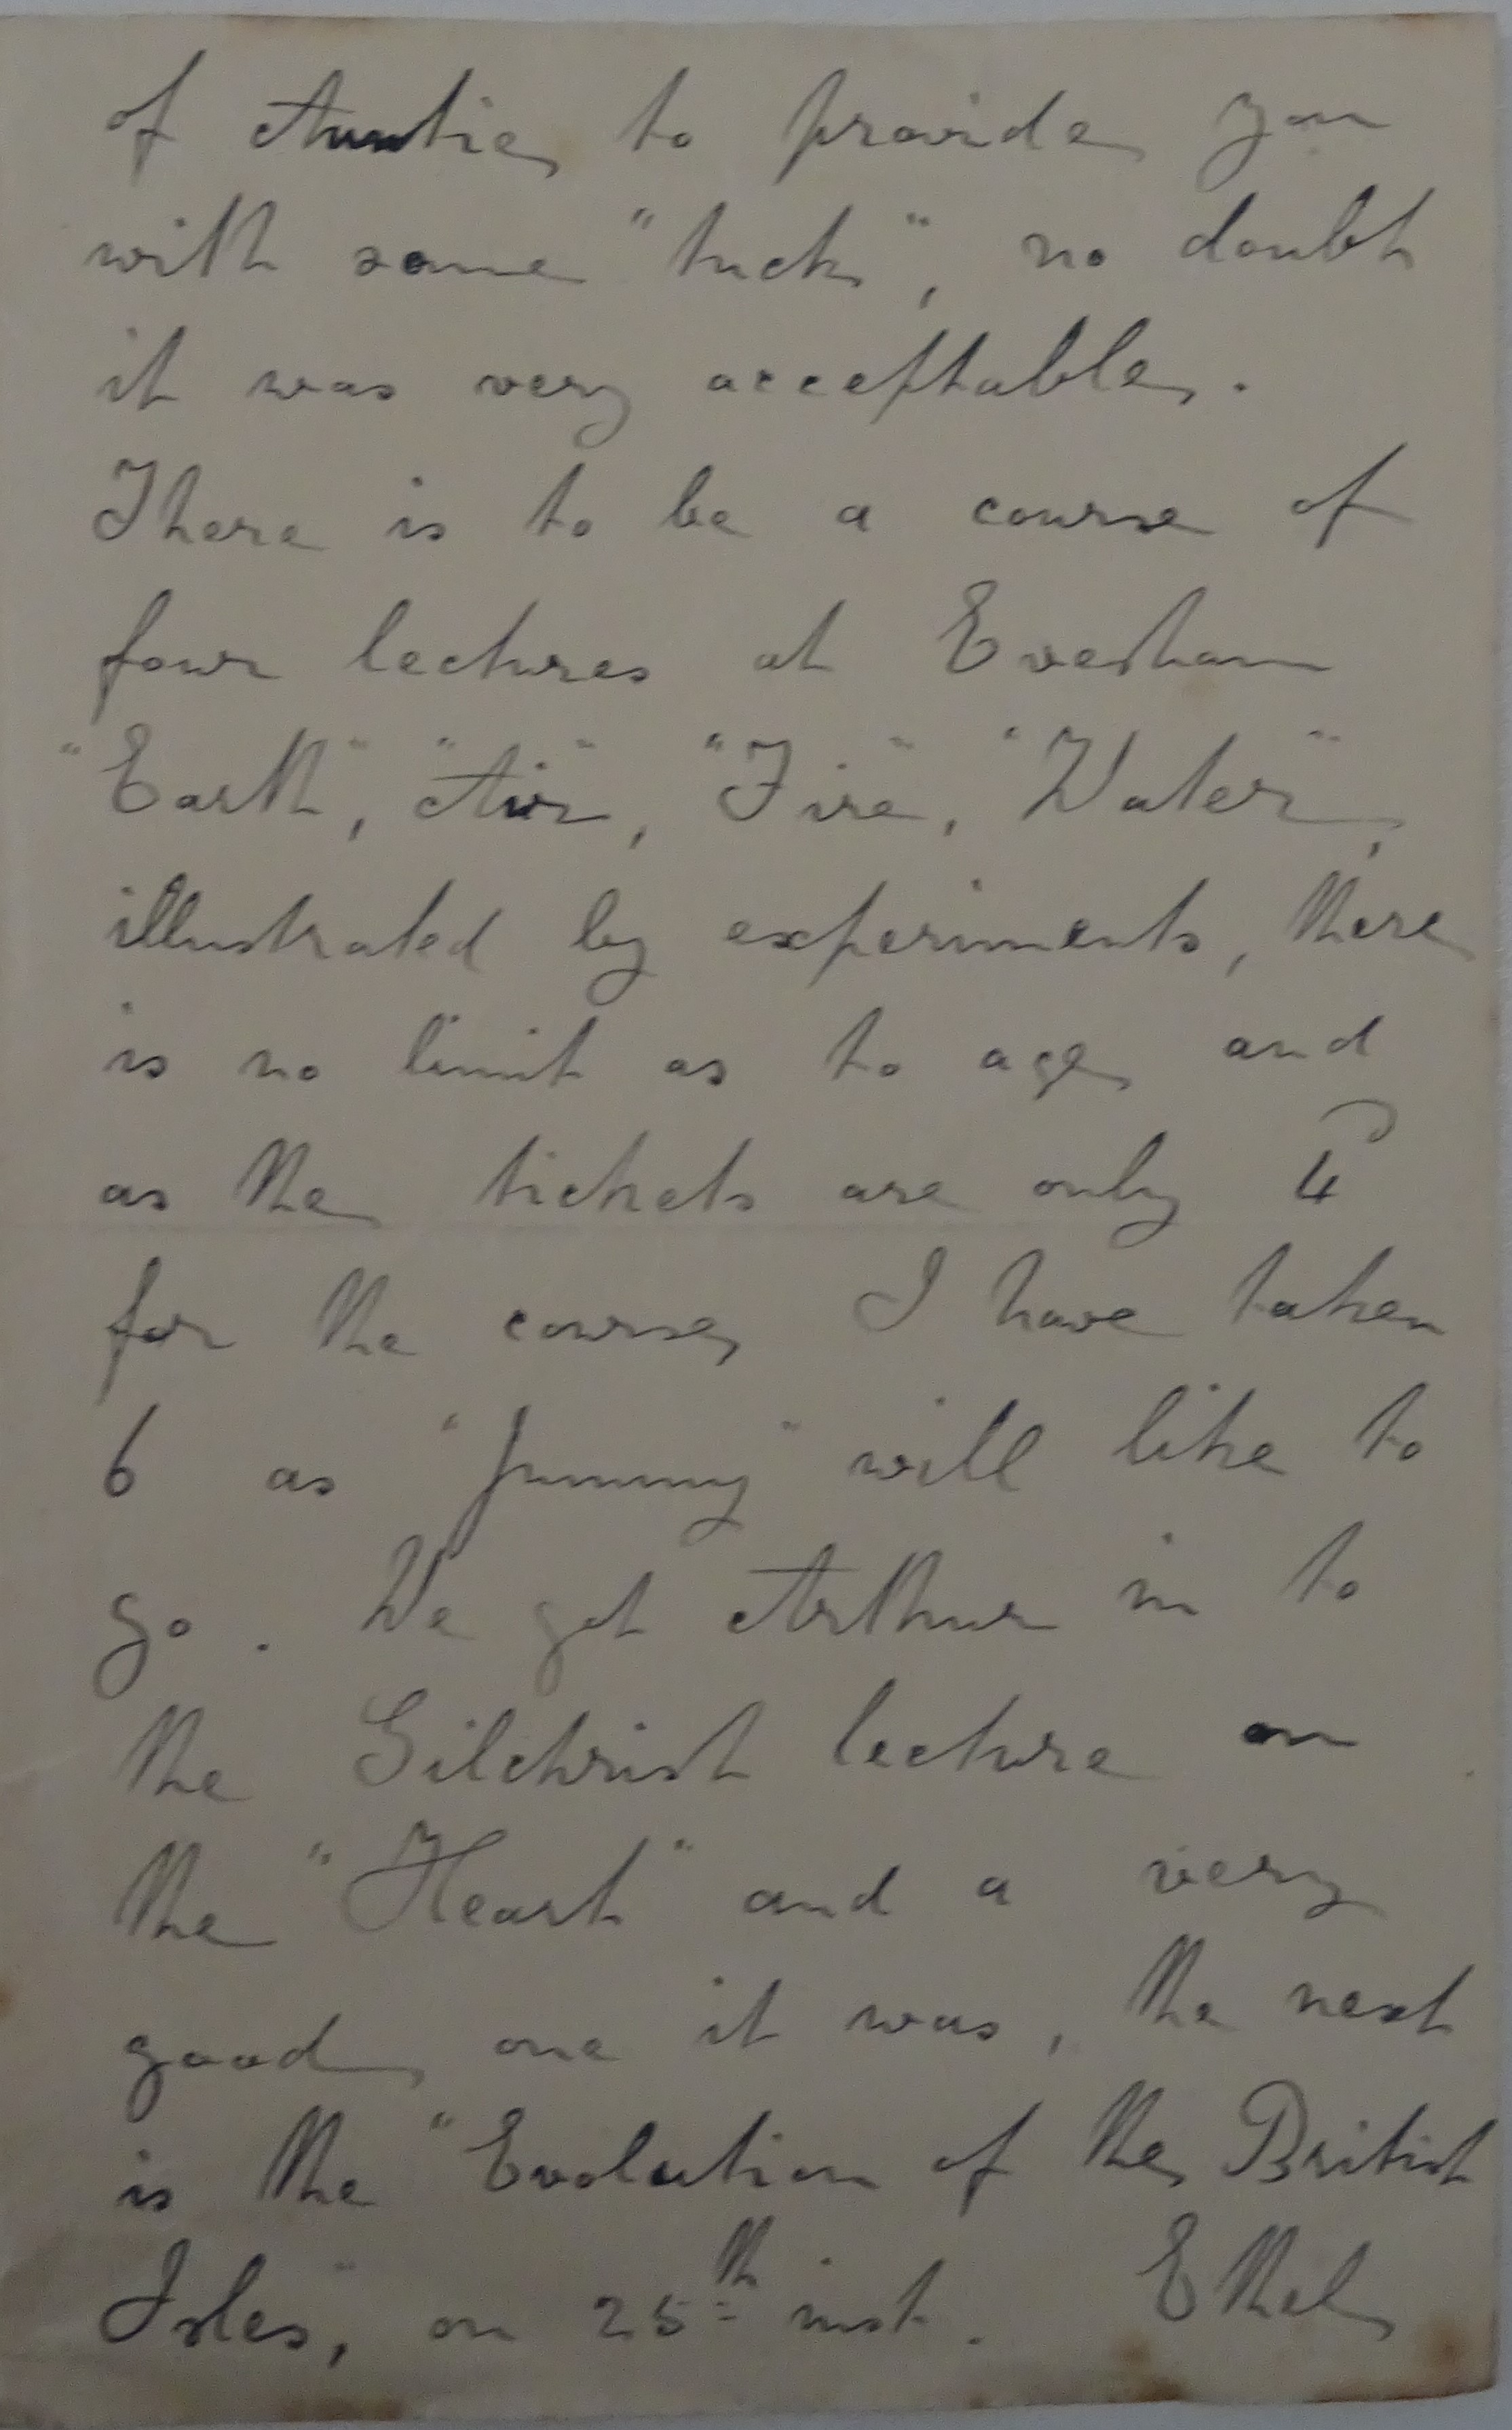 of Auntie to provide you
with some "tuck", no doubt
it was very acceptable.
There is to be a course of
four lectures at Evesham
"Earth", "Air", "Fire", "Water",
illustrated by experiments, there
is no limit as to age and
as the tickets are only 4ᴰ
for the course I have taken
6 as "Jummy" will like to
go. We got Arthur in to
the Gilchrist lecture on
the "Heart" and a very
good one it was, the next
is the "Evolution of the British
Isles", on 25th inst. Ethel